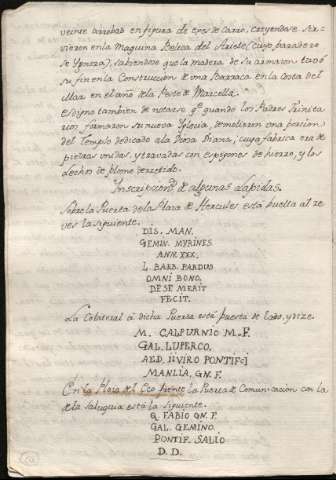 vense tambien en figura de exes de carro, creyendose sir-
vieron en la Maquina Belica del Ariete (cuyo paradero
se Ygnora), sabiendose que la madera de su armazon tubò
su fin en la Construccion de una Barraca en la Costa del
Mar en el año de la Peste de Marcella.
Es digno tambien de notarse qe. quando los Padres Trinita-
rios formaron su nueva Yglesia, demolieron una porcion
del Templo dedicado a la Diosa Diana, cuya fabrica era de
piedras unidas, y travadas con espigones de hierro, y los
lechos de plomo derretido.
Inscripciones de algunas Lapidas.
Sobre la Puerta de la Plaza de Hercules está buelta al re-
ves la siguiente.
DIS. MAN.
GEMIN. MYRINES
ANN XXX.
L. BARB. BARDUS
OMNI BONO.
DE SE MERIT
FECIT.
La Colateral à dicha Puerta està puesta de lado, y dize.
M. CALPURNIO M. F.
GAL. LUPERCO.
AED. IIVIRO PONTIFCI
MANLIA, GN. F.
En la Plaza del Cco frente la Puerta de Comunicacion con la
de la Saluquia está la siguiente.
Q. FABIO GN. F.
GAL. GEMINO.
PONTIF. SALIO
D. D.